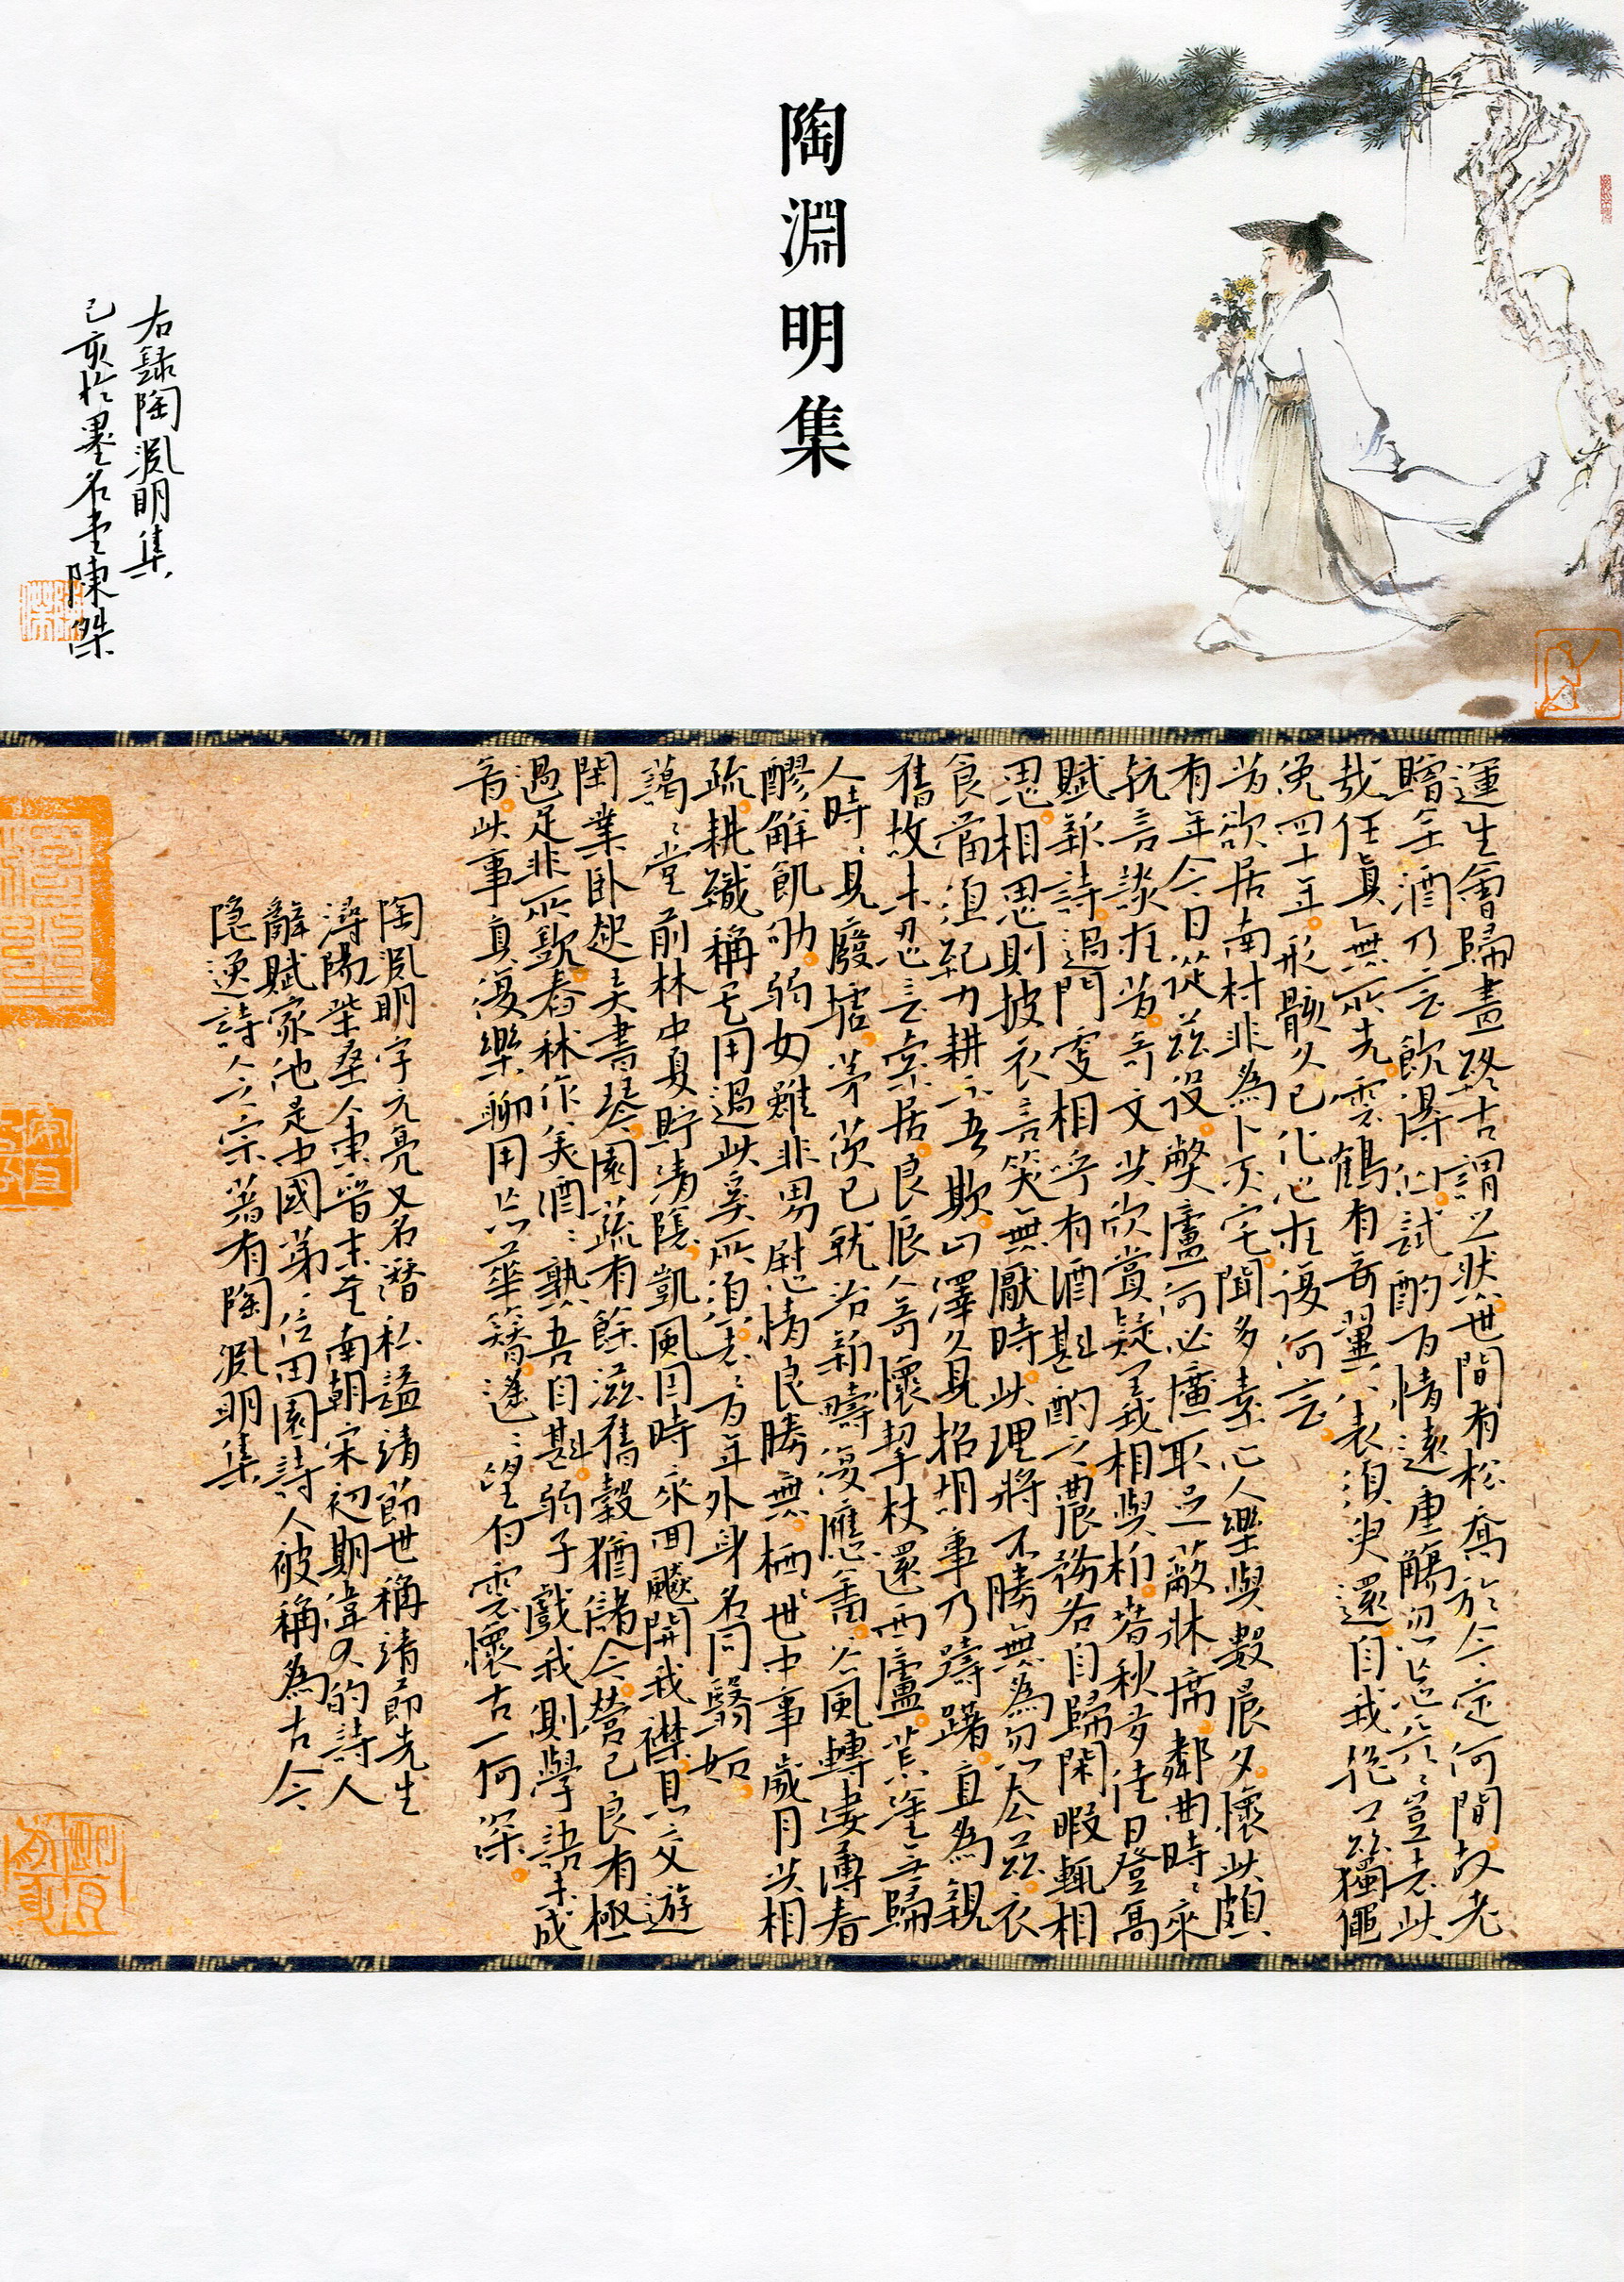 陶淵明集
運生會歸盡終古謂之然世間有松喬於今定何間故老
贈余酒乃言飲得仙試酌百情遠重觴忽忘天〻豈去此
哉任真無所先雲鶴有奇翼八表須臾還自我抱茲獨僶
俛四十年形骸久已化心在復何言
昔欲居南村非為卜其宅聞多素心人樂與數晨夕懷此頗
有年今日從茲役弊廬何必廣取足蔽牀席鄰曲時〻來
抗言談在昔奇文共欣賞疑義相與析春秋多佳日登高
賦新詩過門更相呼有酒斟酌之農務各自歸閑暇輒相
思相思則披衣言笑無厭時此理將不勝無為忽去茲衣
食當須紀力耕不吾欺山澤久見招胡事乃躊躇直為親
舊故未忍言索居良辰入奇懷挈杖還西廬荒塗無歸
人時〻見廢墟茅茨已就治新疇復應畬谷風轉淒薄春
醪解飢劬弱女雖非男慰情良勝無栖〻世中事歲月共相
疏耕織稱其用過此奚所須去〻百年外身名同翳如
藹〻堂前林中夏貯清陰凱風因時來回飆開我襟息交遊
閑業臥起弄書琴園蔬有餘滋舊穀猶儲今營己良有極
過足非所欽舂秫作美酒〻熟吾自斟弱子戲我側學語未成
音此事真復樂聊用忘華簪遙〻望白雲懷古一何深
陶淵明字元亮又名潛私謚靖節世稱靖節先生
潯陽柴桑人東晉末至南朝宋初期偉大的詩人
辭賦家他是中國第一位田園詩人被稱為古今
隱逸詩人之宗著有陶淵明集
右錄陶淵明集
己亥於墨名堂陳傑